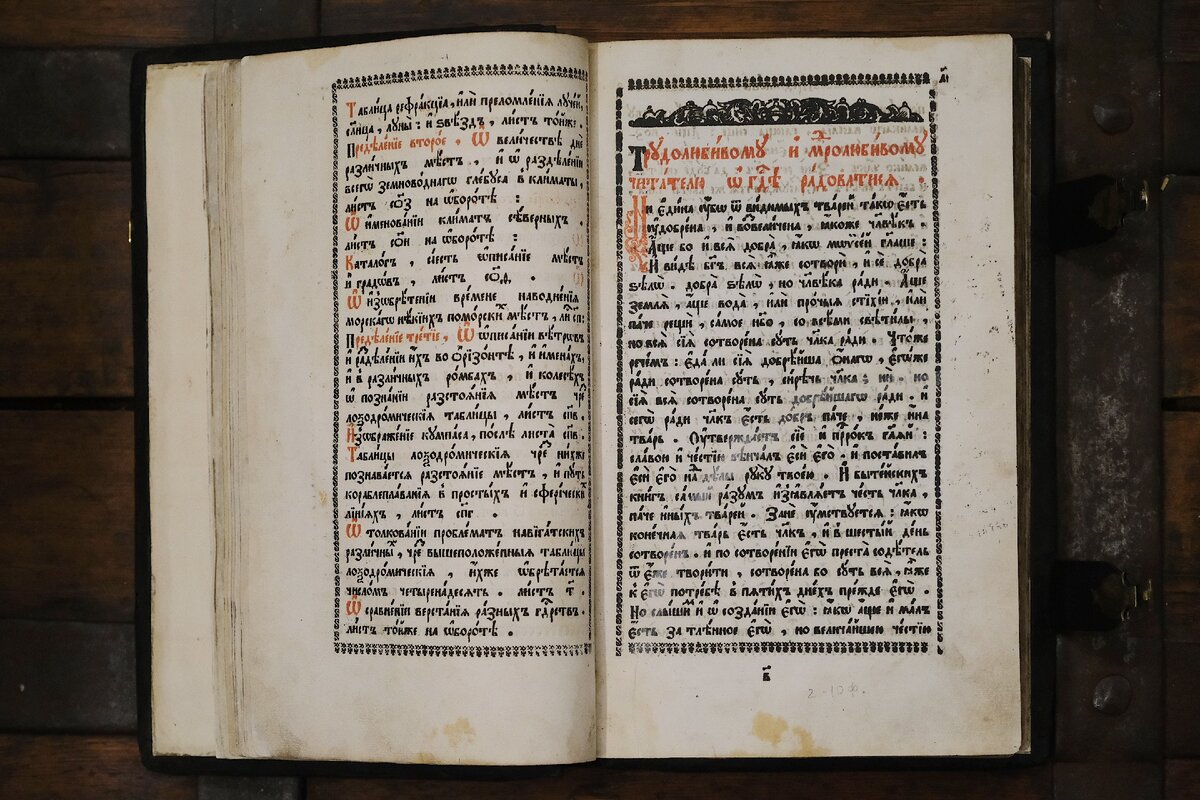 Таблица рефра́кцїа, и҆лѝ преломле́нїѧ лꙋче́й,
со́лнца, лꙋны̀: и҆ ѕвѣ́здъ, ли́стъ то́йже.
Предѣле́нїе второ́е, Ѿ вели́чествѣ днѐ
разли́чныхъ мѣ́стъ, и҆ ѿ раздѣле́нїи
всегѡ̀ земноводнагѡ гле́бꙋса в̾ кли́маты,
ли́стъ на ѡ҆боро́тѣ :
Ѿ и҆менова́нїи кли́матъ сѣ́верныхъ.
ли́стъ на ѡ҆боро́тѣ :
Катало́гъ, сі́есть ѡ҆писа́нїе мѣ́стъ
и҆ градѡ́въ, ли́стъ .
Ѿ и҆з̾ѡбрѣ́тенїи вре́мене наводне́нїѧ
морска́гѡ нѣ́кїихъ помо́рски́хъ мѣ́стъ,
Предѣле́нїе тре́тїе, Ѿ ѡ҆писа́нїи вѣ́трѡвъ
и҆ раздѣле́нїи и҆́хъ во ѻ҆рїзо́нтѣ, и҆ и҆мена́хъ,
и҆ в̾ разли́чныхъ ро́мбахъ, и҆ колесѣ́хъ
ѡ҆ позна́нїи разстоѧ́нїѧ мѣ́стъ чре́з̾
лоѯодро́мическїѧ табли́цы, ли́стъ сп҃в.
И҆з̾ѡбраже́нїе кꙋмпа́са, по́слѣ листа̀ сп҃в.
Табли́цы лоѯодро́мическїѧ чре́з̾ ни́хже
познава́етсѧ разстоѧ́нїе мѣ́стъ, и҆ пꙋ́ть
кораблепла́ванїѧ в̾ просты́хъ и҆ сфери́чески́хъ
лїнїѧхъ, ли́стъ сп҃г .
Ѿ толкова́нїи пробле́матъ навїга́тскихъ
разли́чныхъ, чре́з̾ вышеположе́нныѧ табли́цы
лоѯодро́мическїѧ, и҆́хже ѡ҆брѣта́етсѧ
число́мъ четырена́десѧть. ли́стъ т҃.
Ѿ сравне́нїи верста́нїѧ ра́зныхъ гдⷭ҇рствъ.
ли́стъ то́йже на ѡ҆боро́тѣ.
а҃
Трꙋдолюби́вомꙋ и҆ мⷣролюби́вомꙋ
чита́телю ѡ҆ гдⷭ҇ѣ ра́доватисѧ.
Ни є҆ди́на ᲂу҆́бѡ ѿ ви́димыхъ тва́рей та́кѡ є҆́сть
ᲂу҆до́брена, и҆ воз̾вели́чена, ꙗ҆́коже члвⷣкъ.
А҆́ще бо и҆ всѧ̑ дѡбра̀, ꙗ҆́кѡ мѡѷсе́й гла́ше:
И҆ ви́дѣ бг҃ъ всѧ̑ ꙗ҆̀же сотворѝ, и҆ сѐ добра̀
ѕѣлѡ̀. добра̀ ѕѣлѡ̀, но члвⷣка ра́ди. А҆́ще
землѧ̀, а҆́ще вода̀, и҆лѝ про́чыѧ стїхі́и, и҆лѝ
па́че рещѝ, са́мое не́бо, со всѣ́ми свѣти́лы,
но всѧ̑ сїѧ̑ сотворе́на сꙋ́ть чл҃ка ра́ди. Что́же
рече́мъ: є҆да́ ли сїѧ̑ добрѣ́йша ѻ҆́нагѡ, є҆гѡ́же
ра́ди сотворе́на сꙋ́ть, си́рѣчь чл҃ка: нѝ. но
сїѧ̑ всѧ̑ сотворе́на сꙋ́ть добрѣ́йшагѡ ра́ди. и҆
сегѡ̀ ра́ди чл҃къ є҆́сть до́бръ па́че, не́же и҆на̀
тва́рь. Оу҆твержда́етъ сїѐ и҆ прⷪ҇ро́къ гл҃ѧй:
сла́вою и҆ че́стїю вѣнча́лъ є҆сѝ є҆го̀. и҆ поста́вилъ
є҆сѝ є҆го̀ на́дъ дѣ́лы рꙋкꙋ̀ твоє́ю. И҆ быте́йскихъ
кни́гъ са́мый ра́зꙋмъ и҆з̾ѧвлѧ́етъ че́сть чл҃ка,
па́че и҆ны́хъ тва́рей. Занѐ ᲂу҆́мствꙋетсѧ: ꙗ҆́кѡ
коне́чнаѧ тва́рь є҆́сть чл҃къ, и҆ в̾ шесты́й де́нь
сотворе́нъ. и҆ по сотворе́нїи є҆гѡ̀ преста̀ содѣ́тель
ѿ є҆́же твори́ти, сотворе́на бо сꙋ́ть всѧ̑, ꙗ҆̀же
к̾ є҆гѡ̀ потре́бѣ в̾ пѧти́хъ дне́хъ пре́жде є҆гѡ̀.
Но слы́ши и҆ ѡ҆ созда́нїи є҆гѡ̀: ꙗ҆́кѡ а҆́ще и҆ ма́лъ
є҆́сть за тлѣ́нное є҆гѡ̀, но велича́йшею че́стїю
в҃
2-10ф.